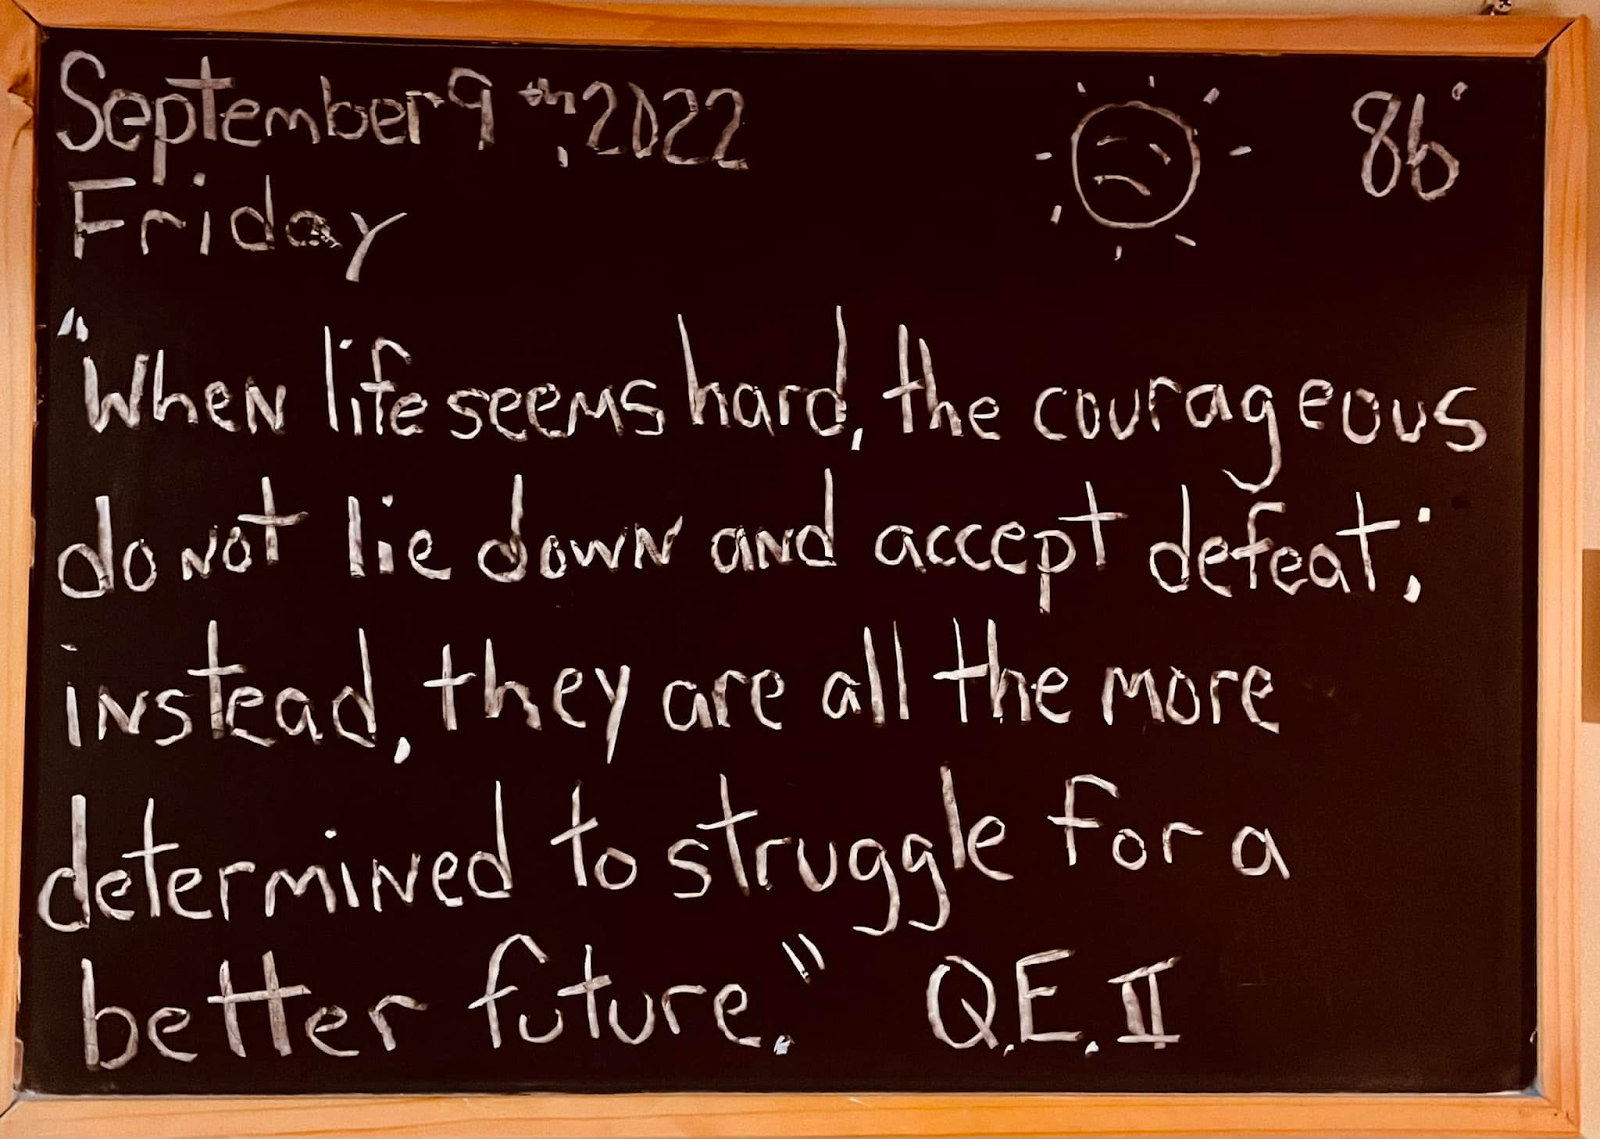 September 9th, 2022 86°
Friday
"When life seems hard, the courageous
do not lie down and accept defeat;
instead, they are all the more
determined to struggle for a
better future." Q.E.II